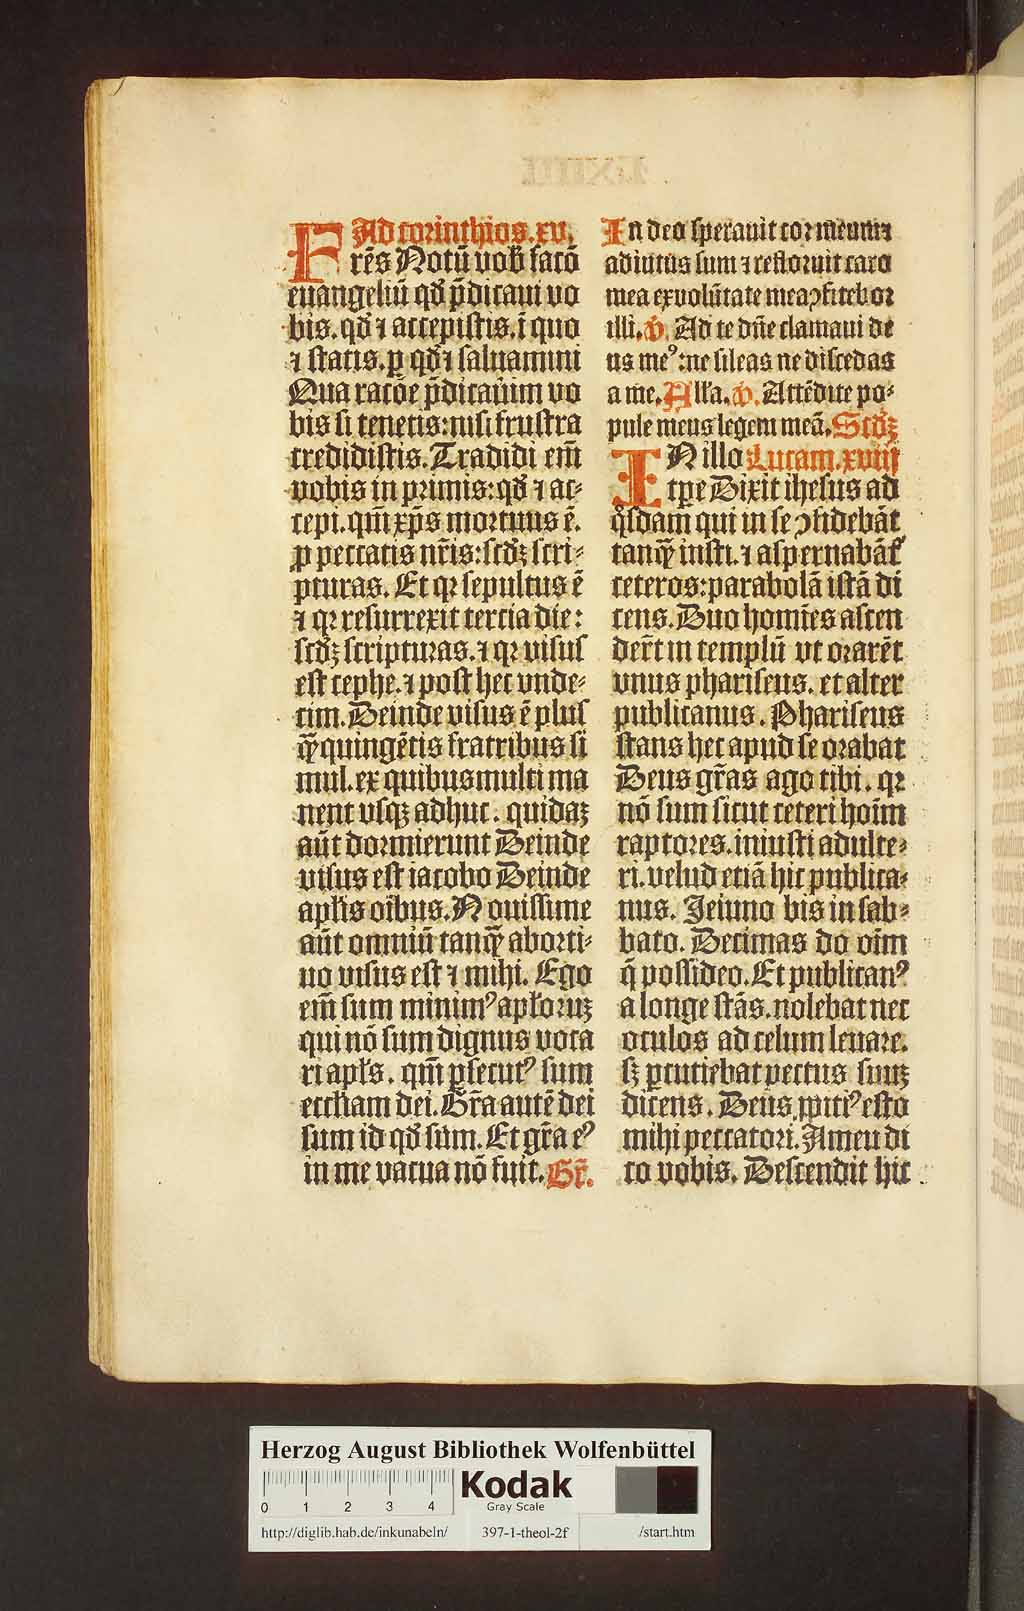 Ad corinthios.xv.
Frēs Notū vob̄ facō
euangeliū qd̄ p̄dicaui vo
bis. qd̄ ⁊ accepistis. ī quo
⁊ statis. ꝑ qd̄ ⁊ saluamini
Qua racōe p̄dicauim vo
bis si tenetis: nisi frustra
credidistis. Tradidi em̄
vobis in primis: qd̄ ⁊ ac⸗
cepi. qm̄ xp̄s mortuus ē.
ꝓ peccatis nr̄is: scdꝫ scri⸗
pturas. Et qꝛ sepultus ē
⁊ qꝛ resurrexit tercia die:
scdꝫ scripturas. ⁊ qꝛ visus
est cephe. ⁊ post hec vnde⸗
cim. Deinde visus ē plus
qꝫ̄ quingētis fratribus si
mul. ex quibus multi ma
nent vsqꝫ adhuc. quidaꝫ
aūt dormierunt Deinde
visus est iacobo Deinde
apl̄is oībus. Nouissime
aūt omniū tanqꝫ̄ aborti⸗
uo visus est ⁊ mihi. Ego
em̄ sum minimꝰ apl̄oruꝫ
qui nō sum dignus voca
ri apl̄s. qm̄ ꝑsecutꝰ sum
eccl̄iam dei. Gr̄a autē dei
sum id qd̄ sum. Et gr̄a eꝰ
in me vacua nō fuit. Gr̄.
In deo sperauit cor meum ⁊
adiutus sum ⁊ refloruit caro
mea ex volūtate mea ꝯfitebor
illi. ℣. Ad te dn̄e clamaui de
us meꝰ: ne sileas ne discedas
a me. All'a. ℣. Attēdite po⸗
pule meus legem meā. Scdꝫ
IN illo Lucam.xviij
tꝑe Dixit ihesus ad
qͦsdam qui in se ꝯfidebāt
tanqꝫ̄ iusti. ⁊ aspernabāt᷑
ceteros: parabolā istā di
cens. Duo homīes ascen
der̄t in templū vt orarēt
vnus phariseus. et alter
publicanus. Phariseus
stans hec apud se orabat
Deus gr̄as ago tibi. qꝛ
nō sum sicut ceteri hoīm
raptores. iniusti adulte⸗
ri. velud etiā hic publica⸗
nus. Ieiuno bis in sab⸗
bato. Decimas do oīm
q̄ possideo. Et publicanꝰ
a longe stās. nolebat nec
oculos ad celum leuare.
sꝫ ꝑcutiebat pectus suuꝫ
dicens. Deus ꝓpiciꝰ esto
mihi peccatori. Amen di
co vobis. Descendit hic
Herzog August Bibliothek Wolfenbüttel
0 1 2 3 4
Kodak
Gray Scale
http://diglib.hab.de/inkunabeln/ 397-1-theol-2f /start.htm